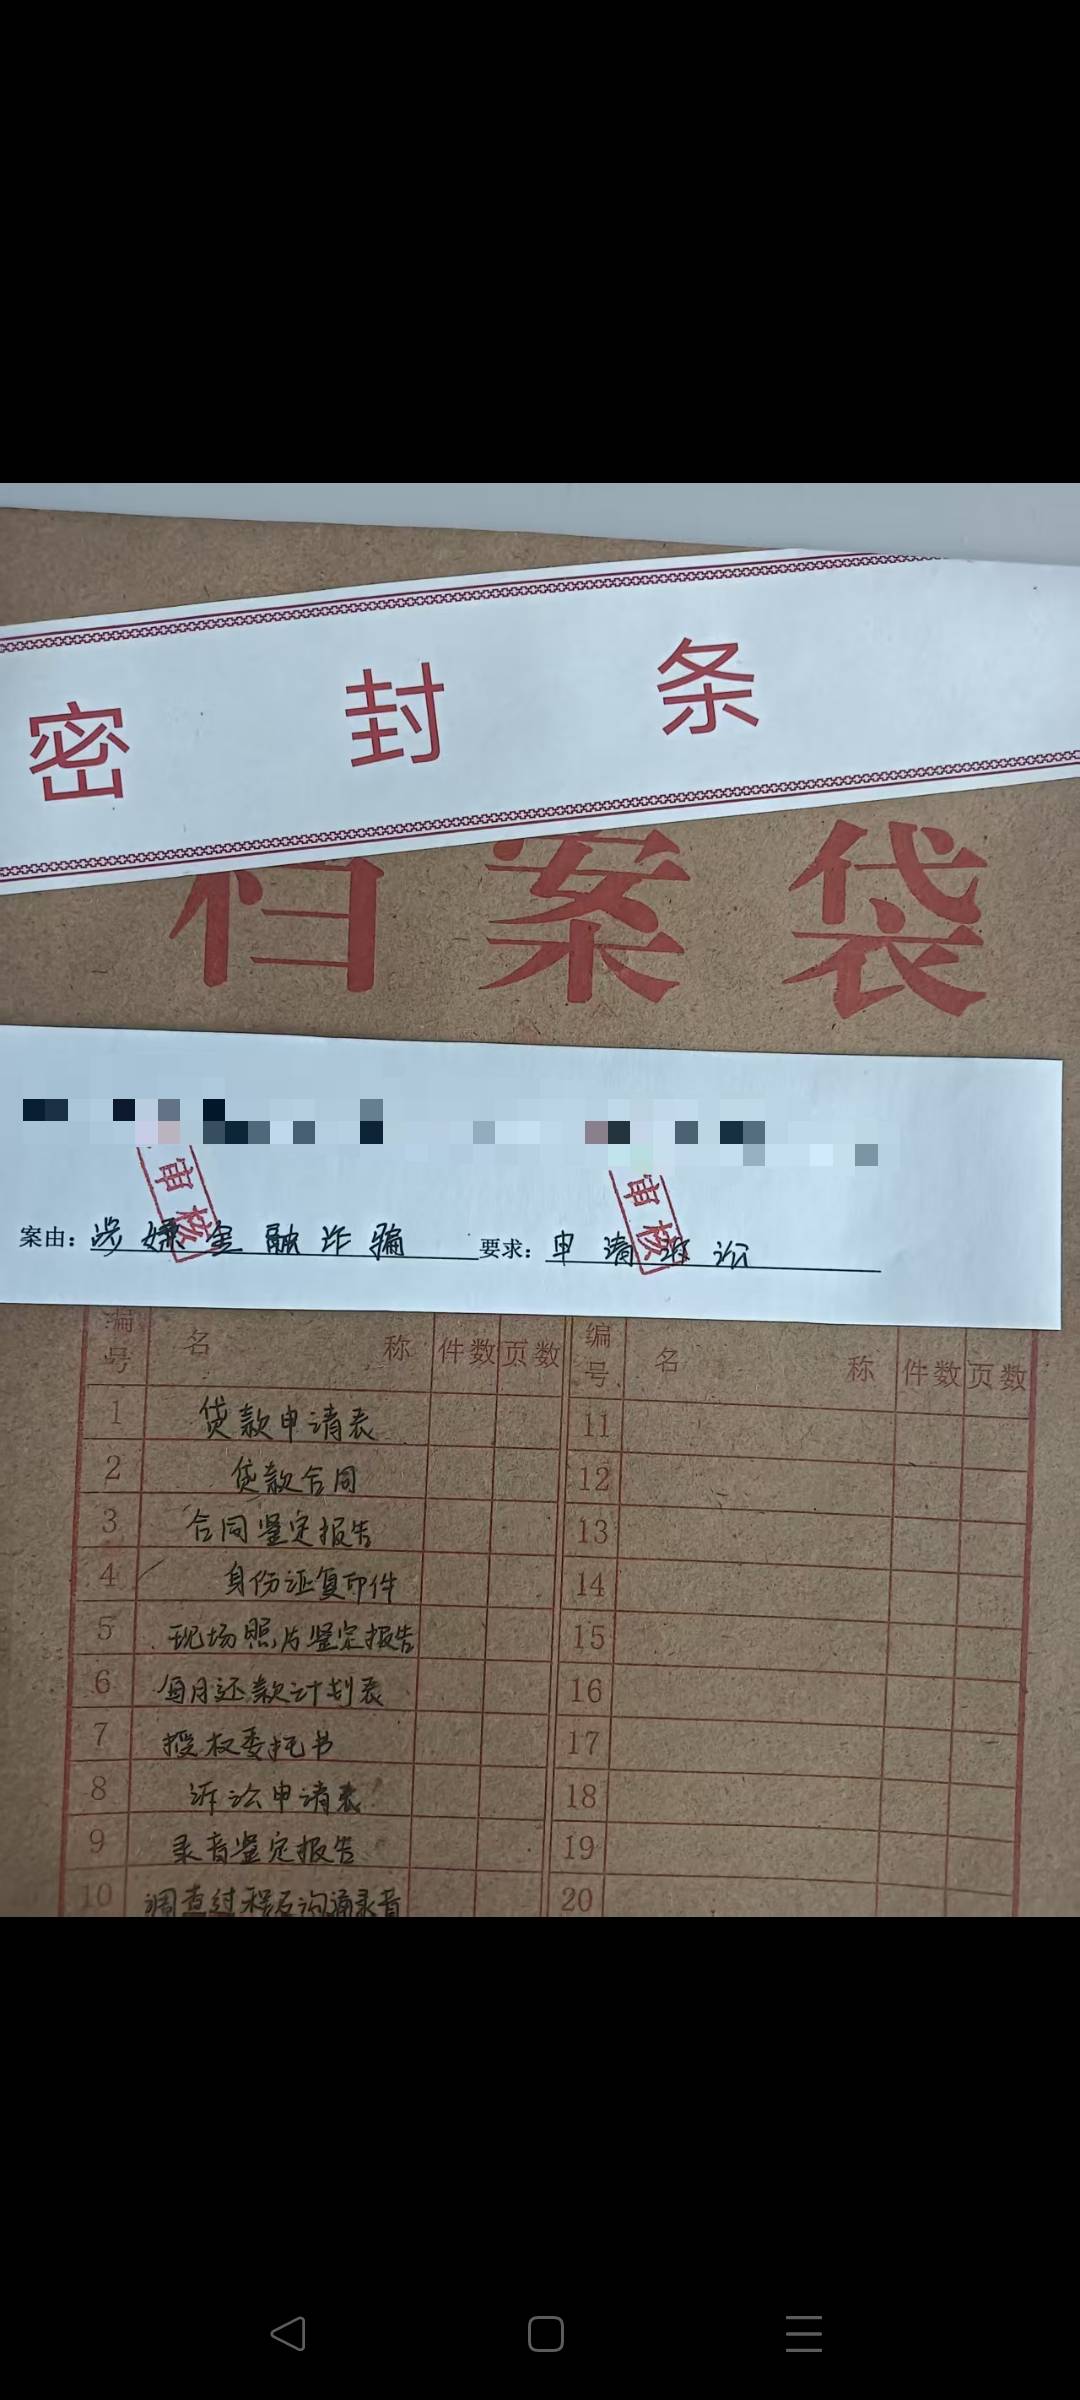 密封条
档案袋
审核 审核
案由：涉嫌金融诈骗 要求：申请诉讼
编号 名称 件数 页数 编号 名称 件数 页数
1 贷款申请表 11
2 贷款合同 12
3 合同鉴定报告 13
4 身份证复印件 14
5 现场照片鉴定报告 15
6 每月还款计划表 16
7 授权委托书 17
8 诉讼申请表 18
9 录音鉴定报告 19
10 调查过程及沟通录音 20